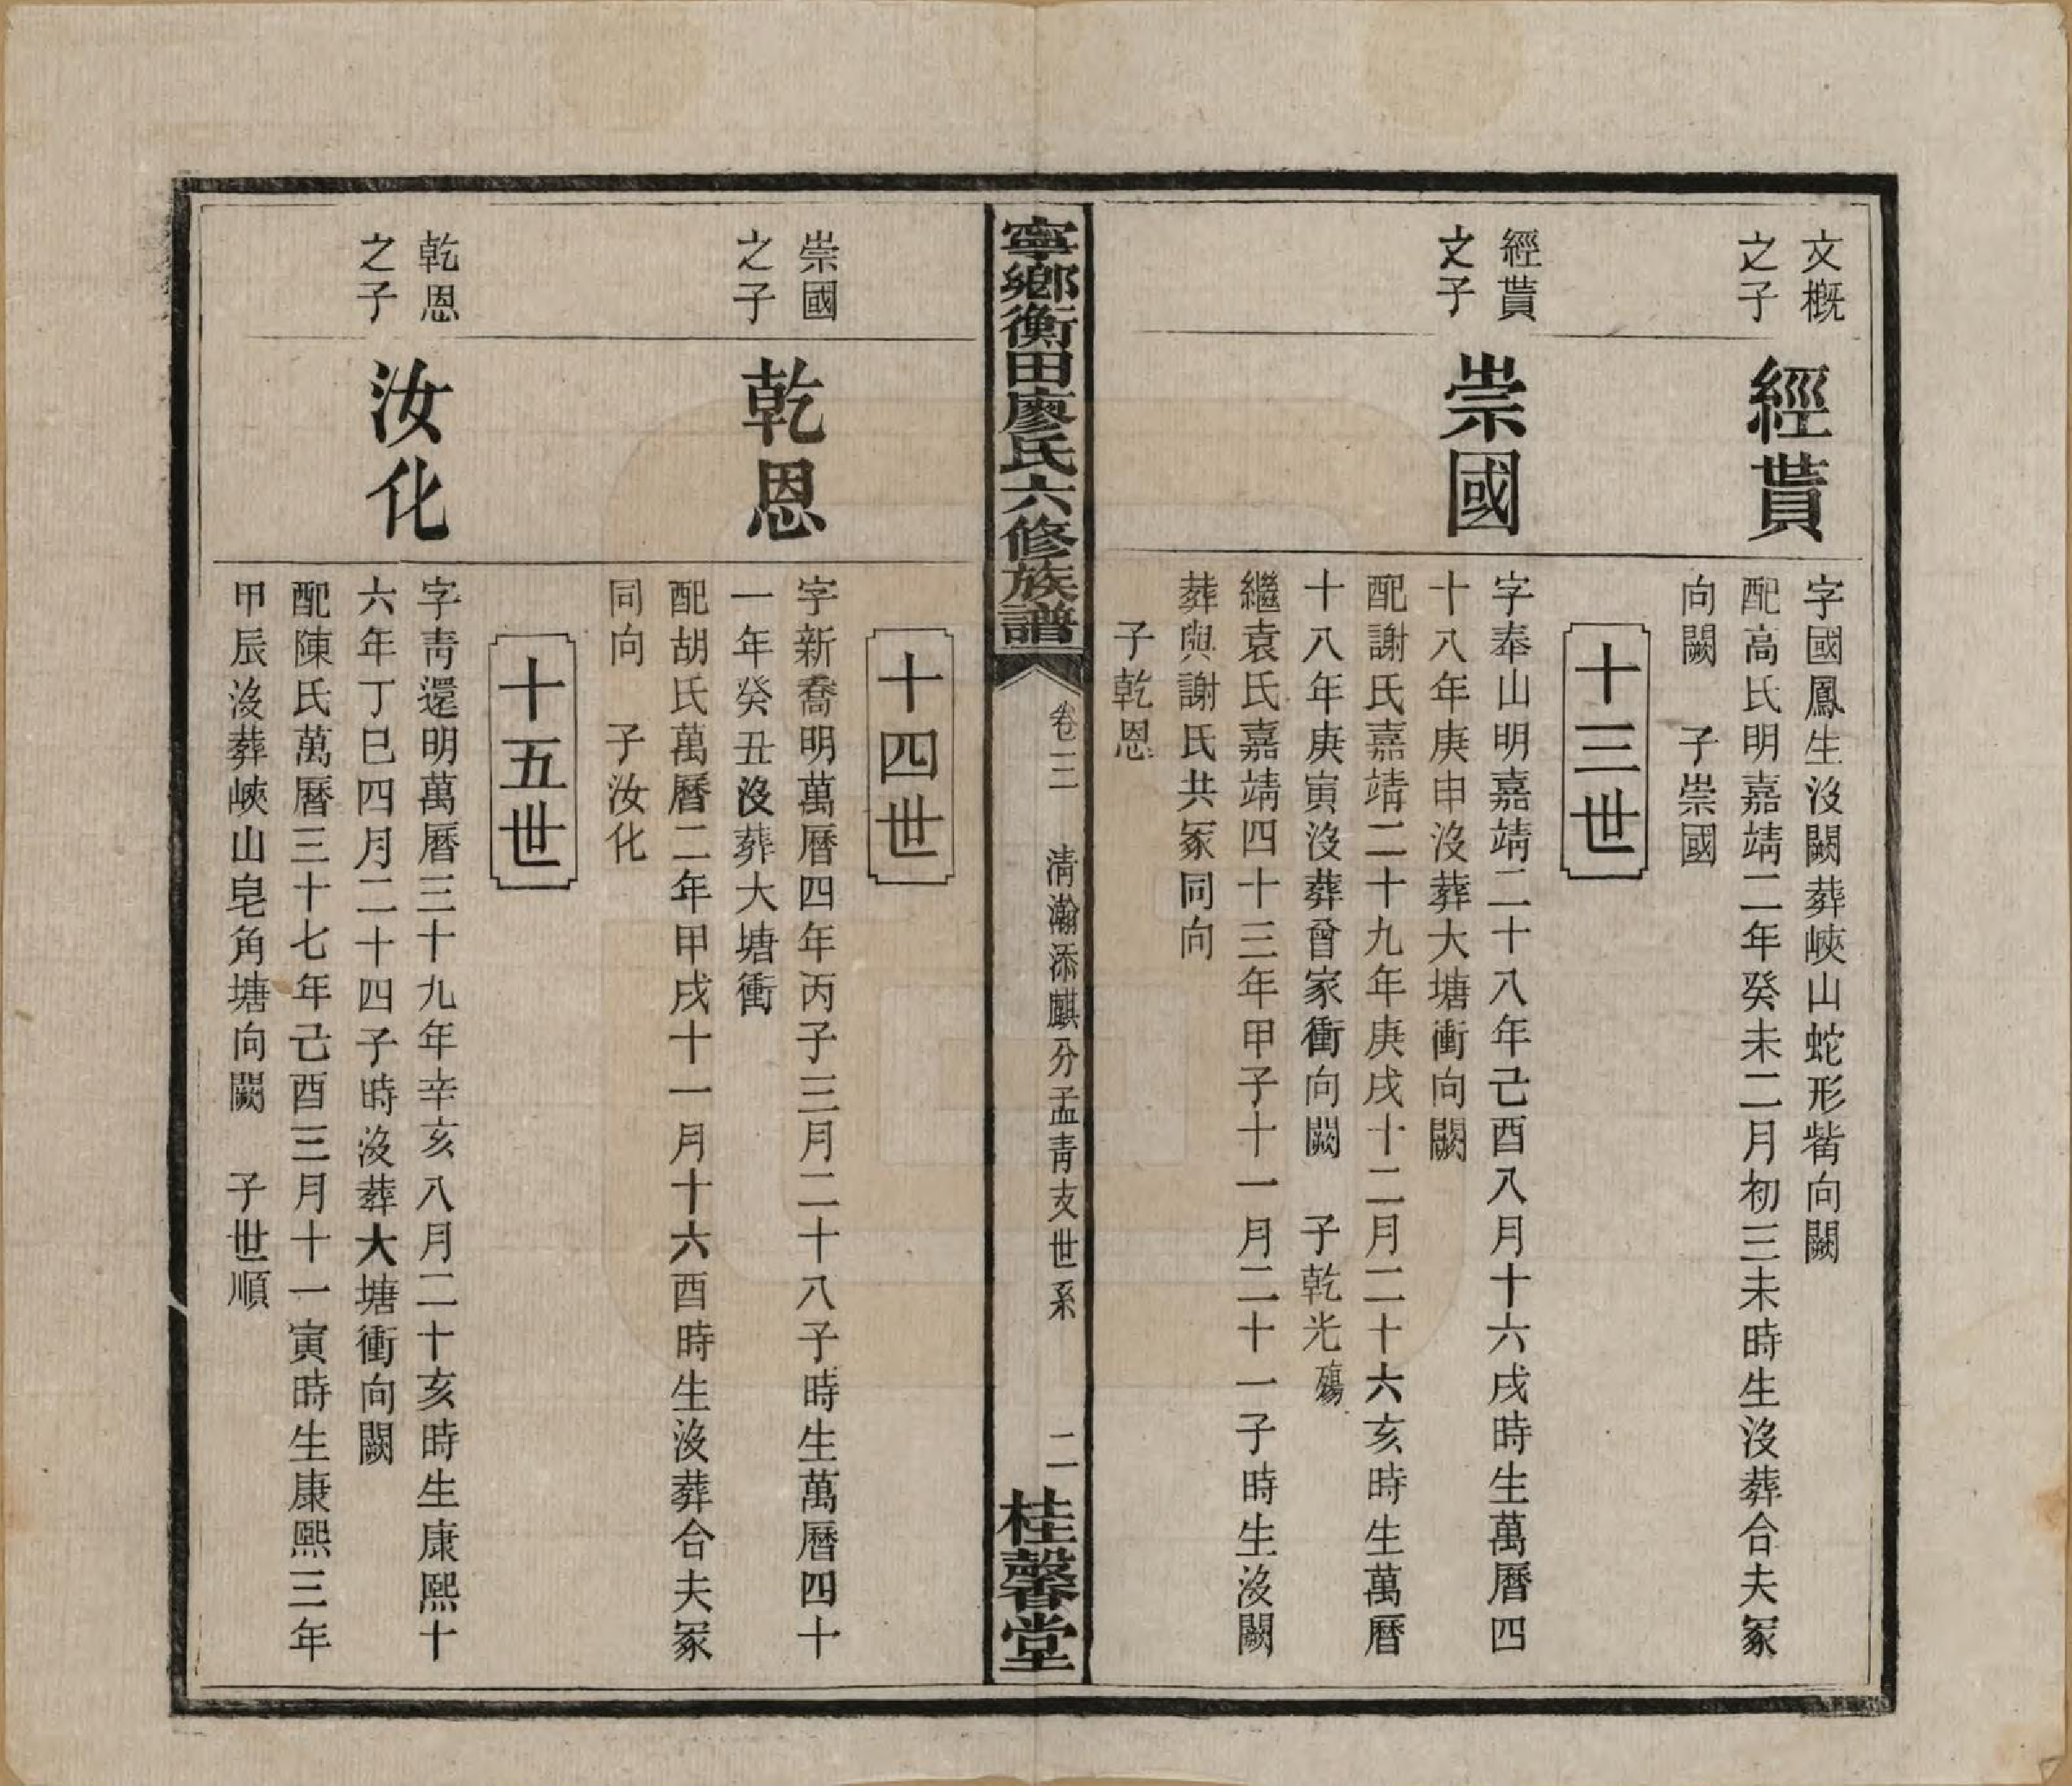 文概
之子
經貰
字國鳳生沒闕葬峽山蛇形嘴向闕
配高氏明嘉靖二年癸未二月初三未時生沒葬合夫冢
向闕　子崇國
十三世
經貰
之子
崇國
字奉山明嘉靖二十八年己酉八月十六戌時生萬曆四
十八年庚申沒葬大塘衝向闕
配謝氏嘉靖二十九年庚戌十二月二十六亥時生萬曆
十八年庚寅沒葬曾家衝向闕　子乾光殤
繼袁氏嘉靖四十三年甲子十一月二十一子時生沒闕
葬與謝氏共冢同向
子乾恩
寧鄉衡田廖氏六修族譜
卷二　清瀚添麒分孟靑支世系　二
桂馨堂
十四世
崇國
之子
乾恩
字新喬明萬曆四年丙子三月二十八子時生萬曆四十
一年癸丑沒葬大塘衝
配胡氏萬曆二年甲戌十一月十六酉時生沒葬合夫冢
同向　子汝化
十五世
乾恩
之子
汝化
字靑還明萬曆三十九年辛亥八月二十亥時生康熙十
六年丁巳四月二十四子時沒葬大塘衝向闕
配陳氏萬曆三十七年己酉三月十一寅時生康熙三年
甲辰沒葬峽山皂角塘向闕　子世順